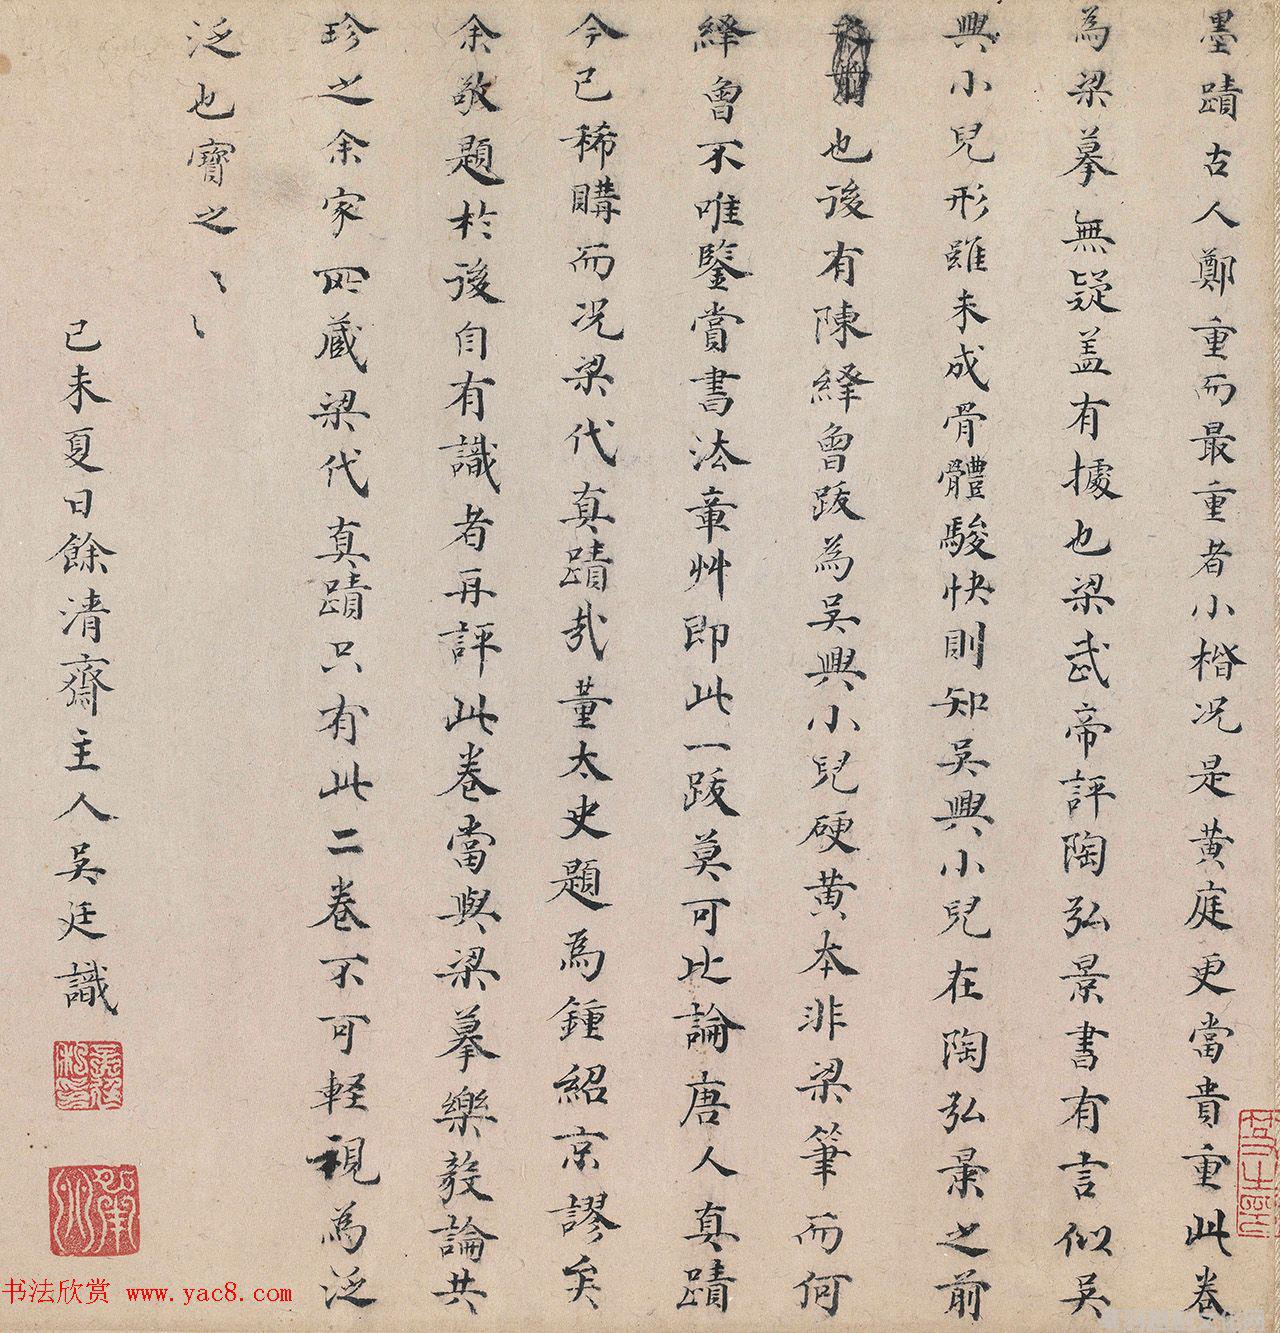 墨蹟古人鄭重而最重者小楷况是黄庭更當貴重此卷
為梁摹無疑盖有據也梁武帝評陶弘景書有言似吴
興小兒形雖未成骨體駿快則知吴興小兒在陶弘景之前
也後有陳繹曾跋為吴興小兒硬黄本非梁筆而何
繹曾不唯鑒賞書法章艸即此一跋莫可比論唐人真蹟
今已稀購而况梁代真蹟哉董太史題為鍾紹京謬矣
余敬題於後自有識者再評此卷當與梁摹樂毅論共
珍之余家所藏梁代真蹟只有此二卷不可輕視為泛
泛也寶之〻〻
己未夏日餘清齋主人吴廷識
书法欣赏 www.yac8.com